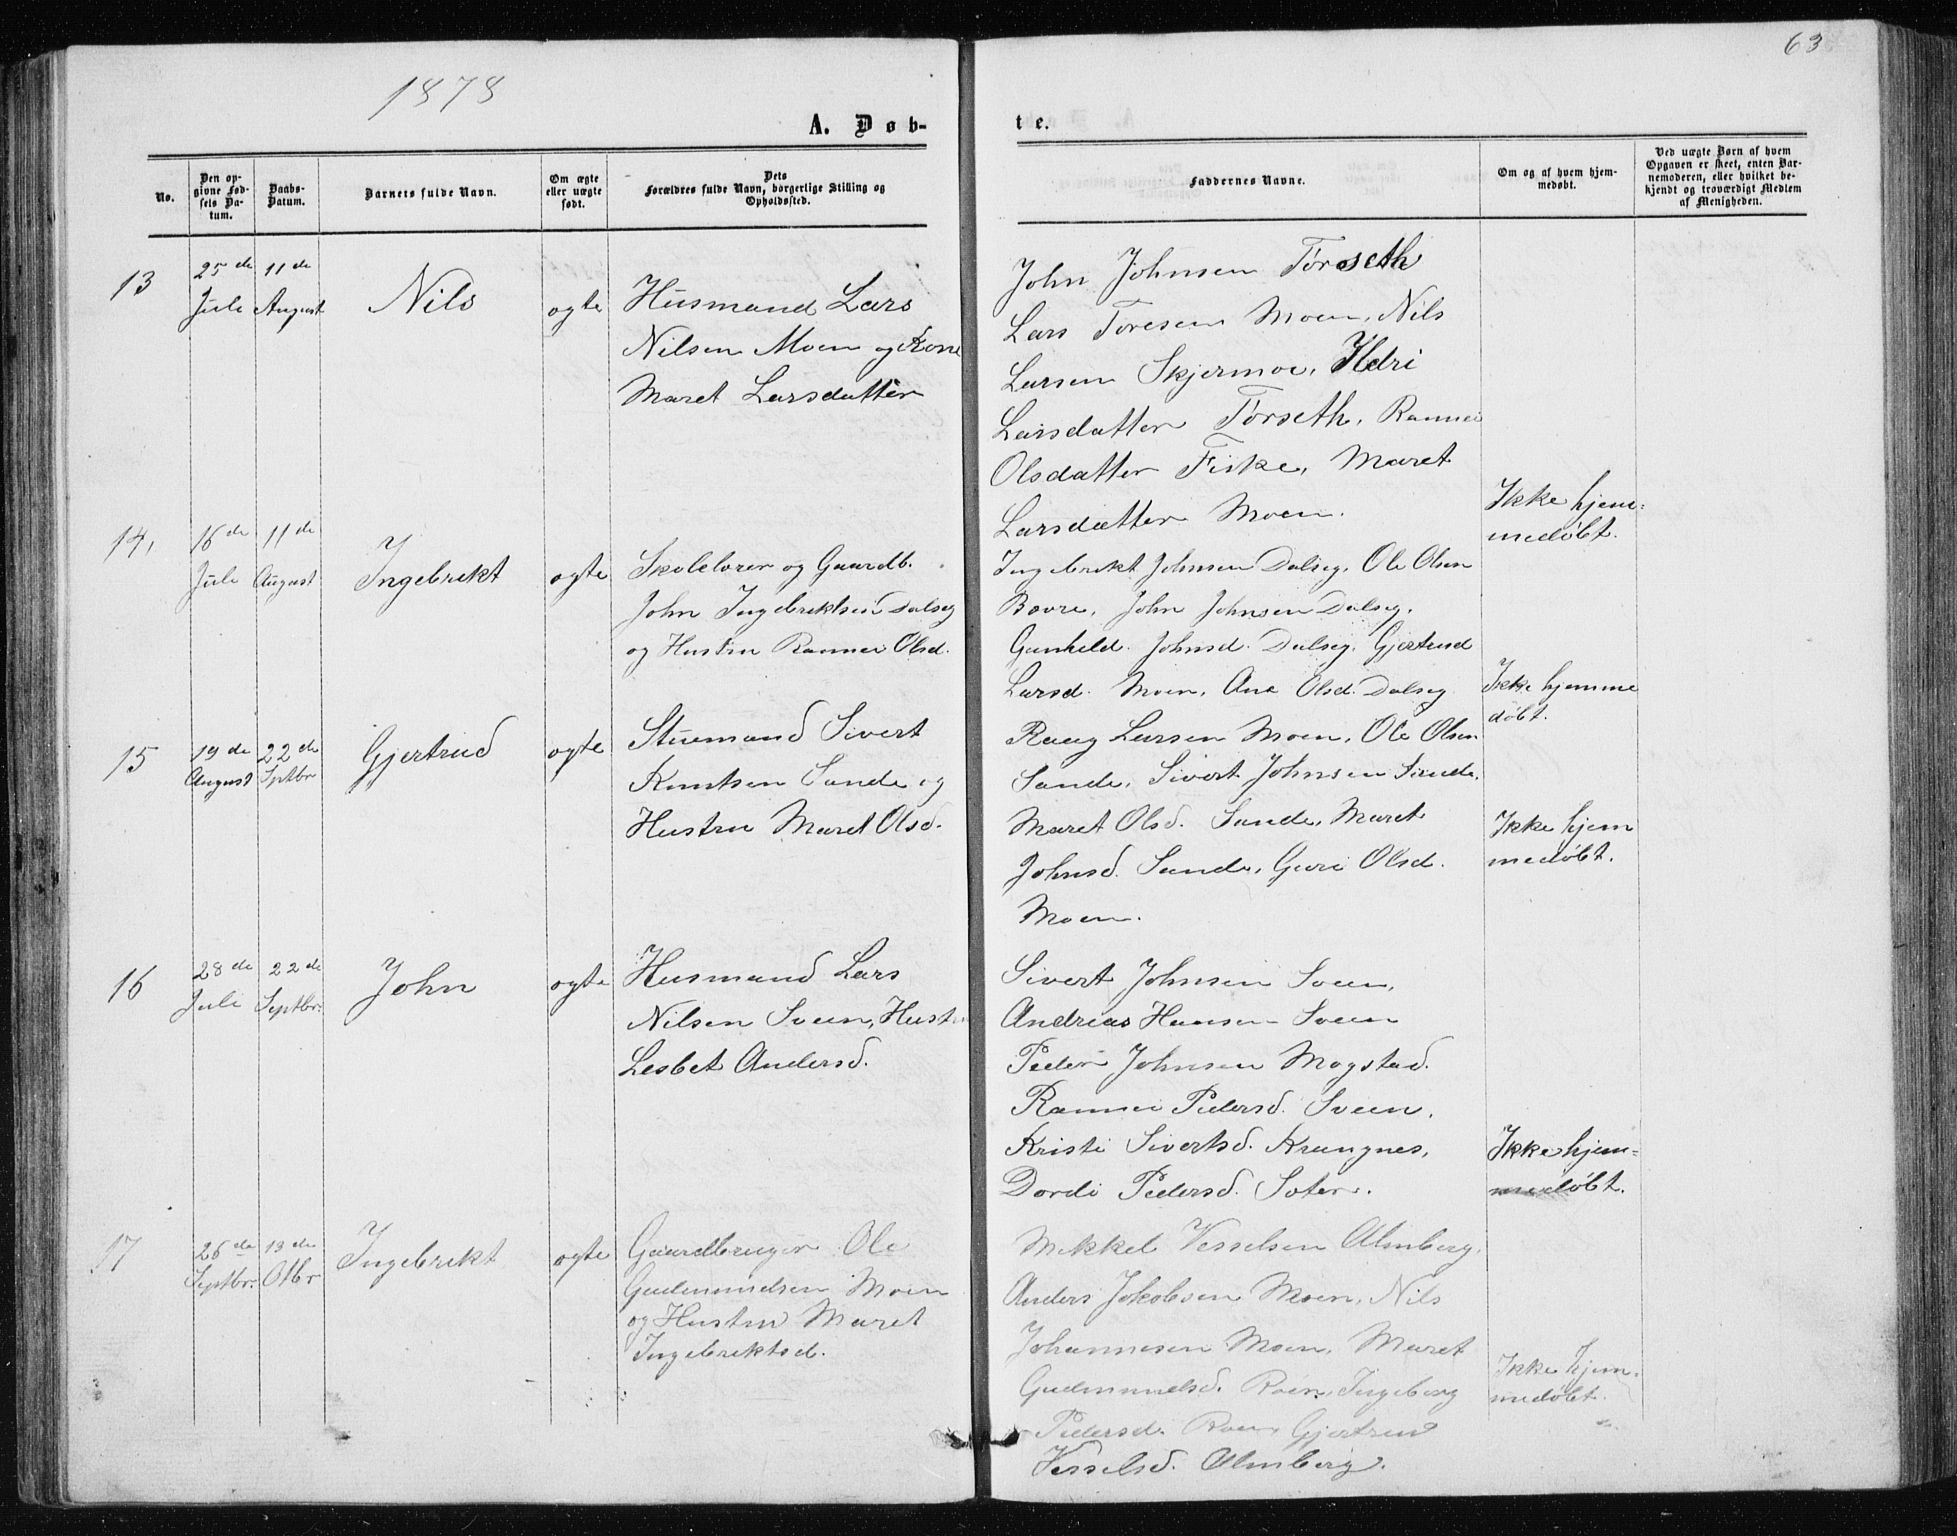 1878
63
A. Døb-
te.
No.
Den op-
givne Fød-
sels Da-
tum.
Daabs-
Datum.
Barnets fulde Navn.
Om ægte
eller uægte
født.
Dets
Forældres fulde Navn, borgerlige Stilling og
Opholdssted.
Faddernes Navne.
Om og af hvem hjem-
medøbt.
Ved uægte Børn af hvem
Opgaven er skeet, enten Bar-
nemoderen, eller hvilket be-
kjendt og troværdigt Medlem
af Menigheden.
13
25 de
Juli
11 de
August
Nils
ogte
Husmand Lars
Nilsen Moen og Kone
Maret Larsdatter
John Johnsen Torseth
Lars Toresen Moen, Nils
Larsen Skjermoe, Ildri
Larsdatter Torseth, Rannei
Olsdatter Fiske, Maret
Larsdatter Moen.
Ikke hjem-
medøbt.
14,
16 de
Juli
11 de
August
Ingebrikt
ogte
Skolelorer og Gaardb.
John Ingebriktsen Dalseg
og Hustru Rannei Olsd.
Ingebrikt Johnsen Dalseg, Ole Olsen
Bovre, John Johnsen Dalseg,
Gunhild Johnsd. Dalseg, Gjertrud
Larsd. Moen, Ane Olsd. Dalseg
Ikke hjemme
døbt.
15
19 de
August
22 de
Septbr
Gjertrud
ogte
Stuemand Sivert
Knutsen Sande og
Hustru Maret Olsd.
Lursen Moen, Ole Olsen
Sande, Sivert Johnsen Sande,
Maret Olsd. Sande, Maret
Johnsd. Sande, Guri Olsd.
Moen.
Ikke hjem
medøbt.
16
28 de
Juli
22 de
Septbr.
John
ogte
Husmand Lars
Nilsen Sveen, Hustru
Lesbet Andersd.
Sivert Johnsen Sveen,
Andreas Hansen Sveen
Peder Johnsen Mogstad.
Rannei Pedersd. Sveen,
Kristi Sivertsd. Krangnes,
Dordi Pedersd. Soter.
Ikke hjem-
medøbt.
17
26 de
Septbr.
13 de
Otbr
Ingebrikt
ogte
Gaardbruger Ole
Gudmundsen Moen
og Hustru Maret
Ingebriktsd.
Mikkel Vesselsen Almberg,
Anders Jakobsen Moen, Nils
Johannesen Moen, Maret
Gudmundsd. Roen, Ingeborg
Pedersd. Roen Gjertrud
Vesselsd. Almberg.
Ikke hjem-
medøbt.